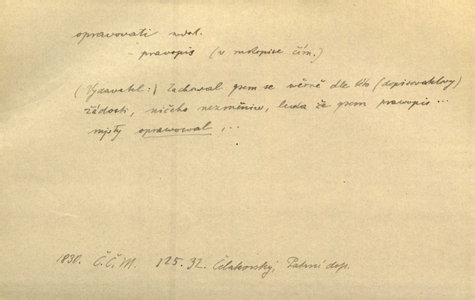 opravovati ned.
- pravopis (v rukopise čím.)
(Vydavatel:) Zachoval jsem se věrně dle této (dopisovatelovy)
žádosti, ničeho nezměniw, leda že jsem prawopis...
místy oprawowal,..
1830. Č.Č.M. 125.32. Čelakovský, Patrní dop.